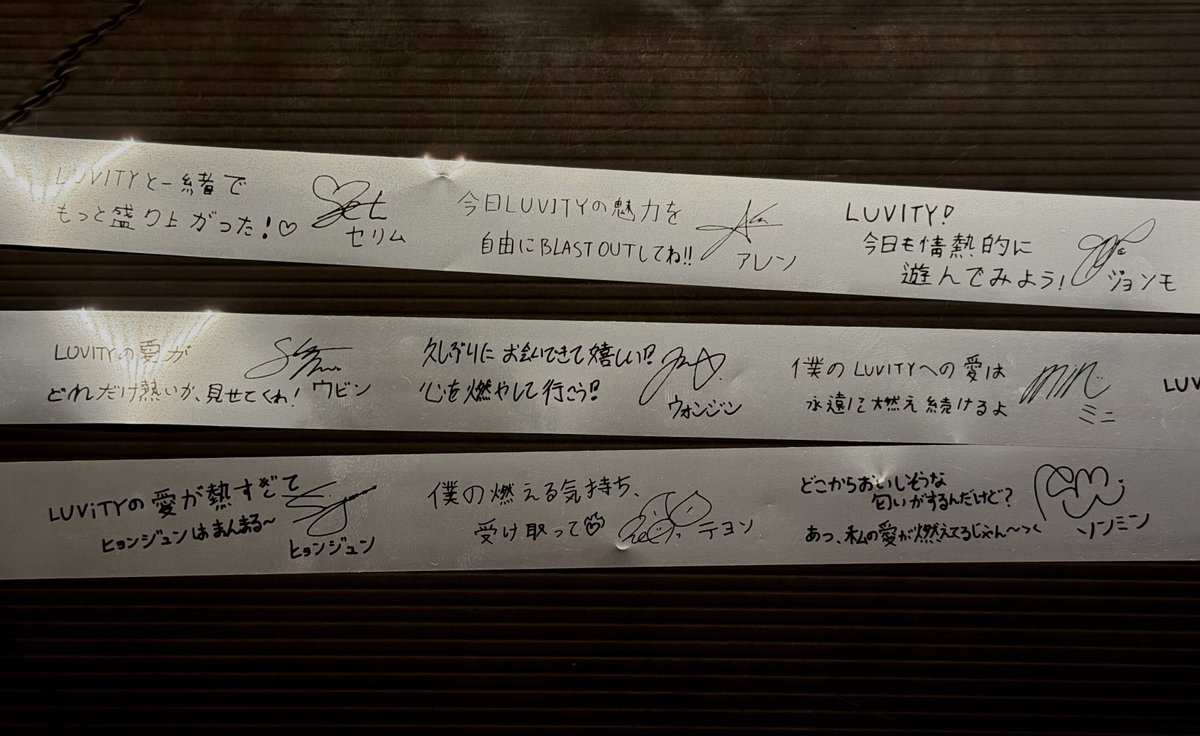 LUVITYと一緒で
もっと盛り上がった！♡
セリム
今日LUVITYの魅力を
自由にBLAST OUTしてね!!
アレン
LUVITY!
今日も情熱的に
遊んでみよう!
ジョンモ
LUVITYの愛が
どれだけ熱いか、見せてくれ!
ウビン
久しぶりに お会いできて嬉しい!!
心を燃やして行こう!!
ウォンジン
僕のLUVITYへの愛は
永遠に燃え続けるよ
ミニ
LUV
LUViTYの愛が熱すぎて
ヒョンジュンはまんまる〜
ヒョンジュン
僕の燃える気持ち、
受け取って♡
テヨン
どこからおいしそうな
匂いがするんだけど?
あっ、私の愛が燃えてるじゃん〜っく
ソンミン